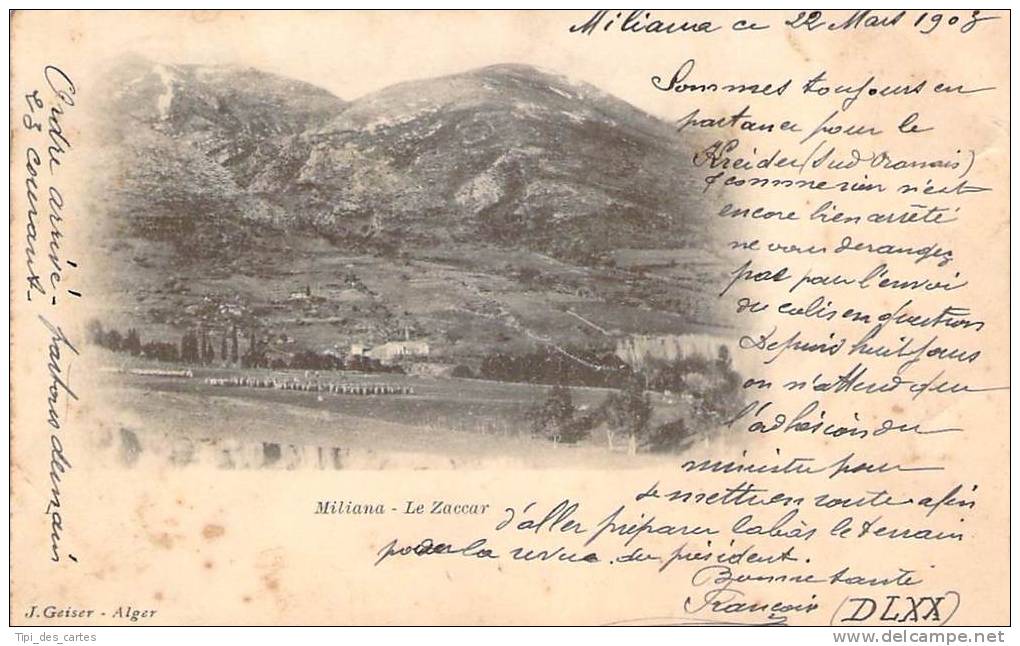 Miliana ce 22 Mars 1903
Sommes toujours en
partance pour le
Kreider (Sud Oranais)
& comme rien n'est
encore bien arrêté
ne vous derangez
pas pour l'envoi
du colis en question
Depuis huit jours
on n'attend que
l'adhésion du
ministre pour
se mettre en route afin
d'aller préparer labàs le terrain
pour la revue du président.
Bonne santé
François (DLXX)
Ordre arrivé - partons demain
23 courant.
Miliana - Le Zaccar
J. Geiser - Alger
Tipi_des_cartes
delcampe.net